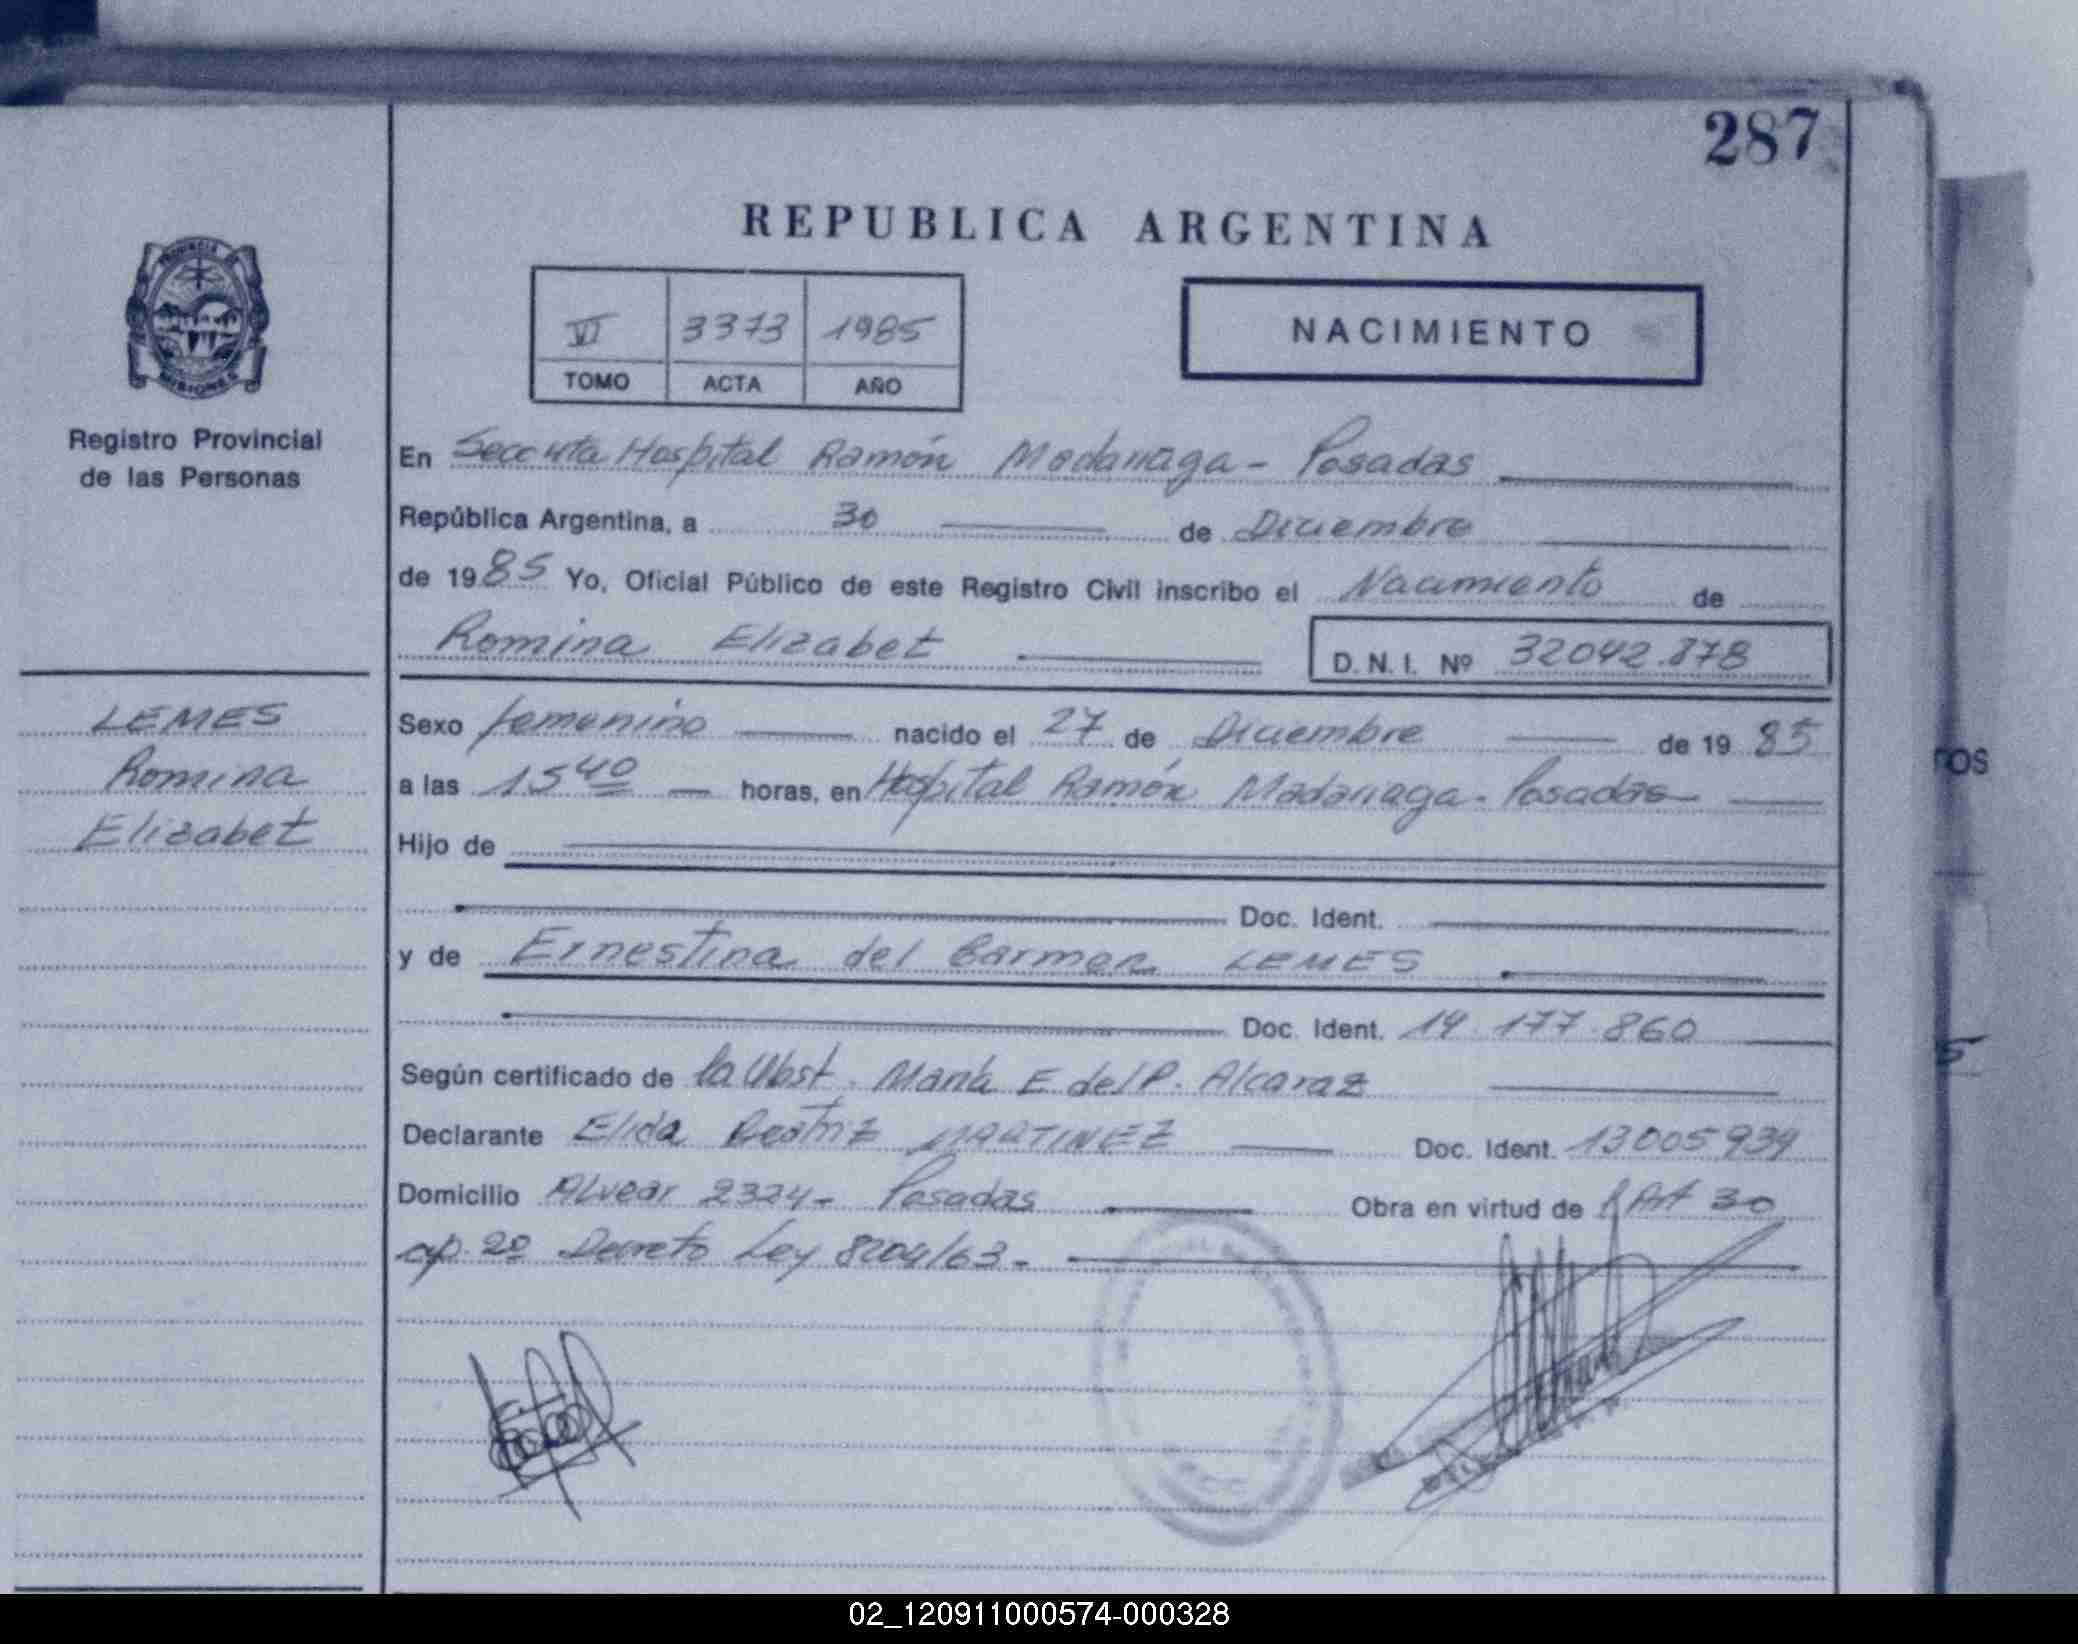 287
REPUBLICA ARGENTINA
VI 3373 1985
TOMO ACTA AÑO
NACIMIENTO
PROVINCIA
MISIONES
Registro Provincial
de las Personas
LEMES
Romina
Elizabet
En Hospital Ramón Madariaga - Posadas
República Argentina, a 30 de Diciembre
de 1985 Yo, Oficial Público de este Registro Civil inscribo el Nacimiento de
Romina Elizabet D. N. I. Nº 32042.878
Sexo femenino nacido el 27 de Diciembre de 1985
a las 15 40 horas, en Hospital Ramón Madariaga - Posadas
Hijo de
Doc. Ident.
y de Ernestina del Carmen LEMES
Doc. Ident. 14.177.860
Según certificado de la Obst. María E del P. Alcaraz
Declarante Elida Beatriz MARTINEZ Doc. Ident. 13005934
Domicilio Alvear 2324 - Posadas Obra en virtud de Art 30
ap. 2º Decreto Ley 8204/63 -
TOS
5
02_120911000574-000328